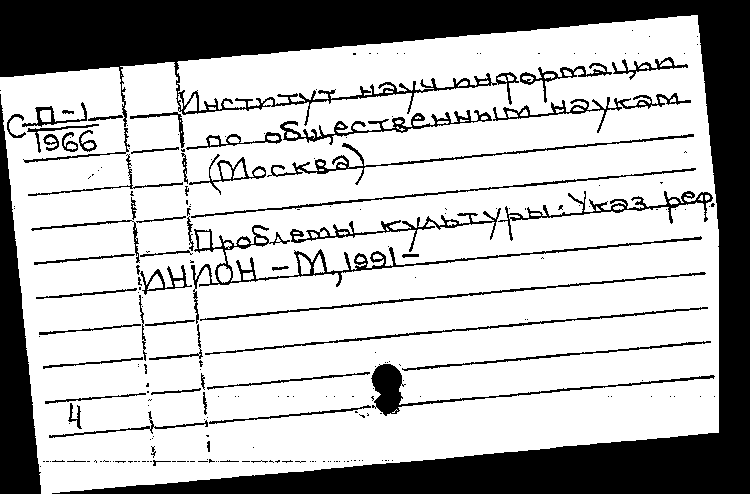 С П-1
1966
Институт науч информации
по общественным наукам
(Москва)
Проблемы культуры: Указ реф.
ИНИОН - М, 1991-
4